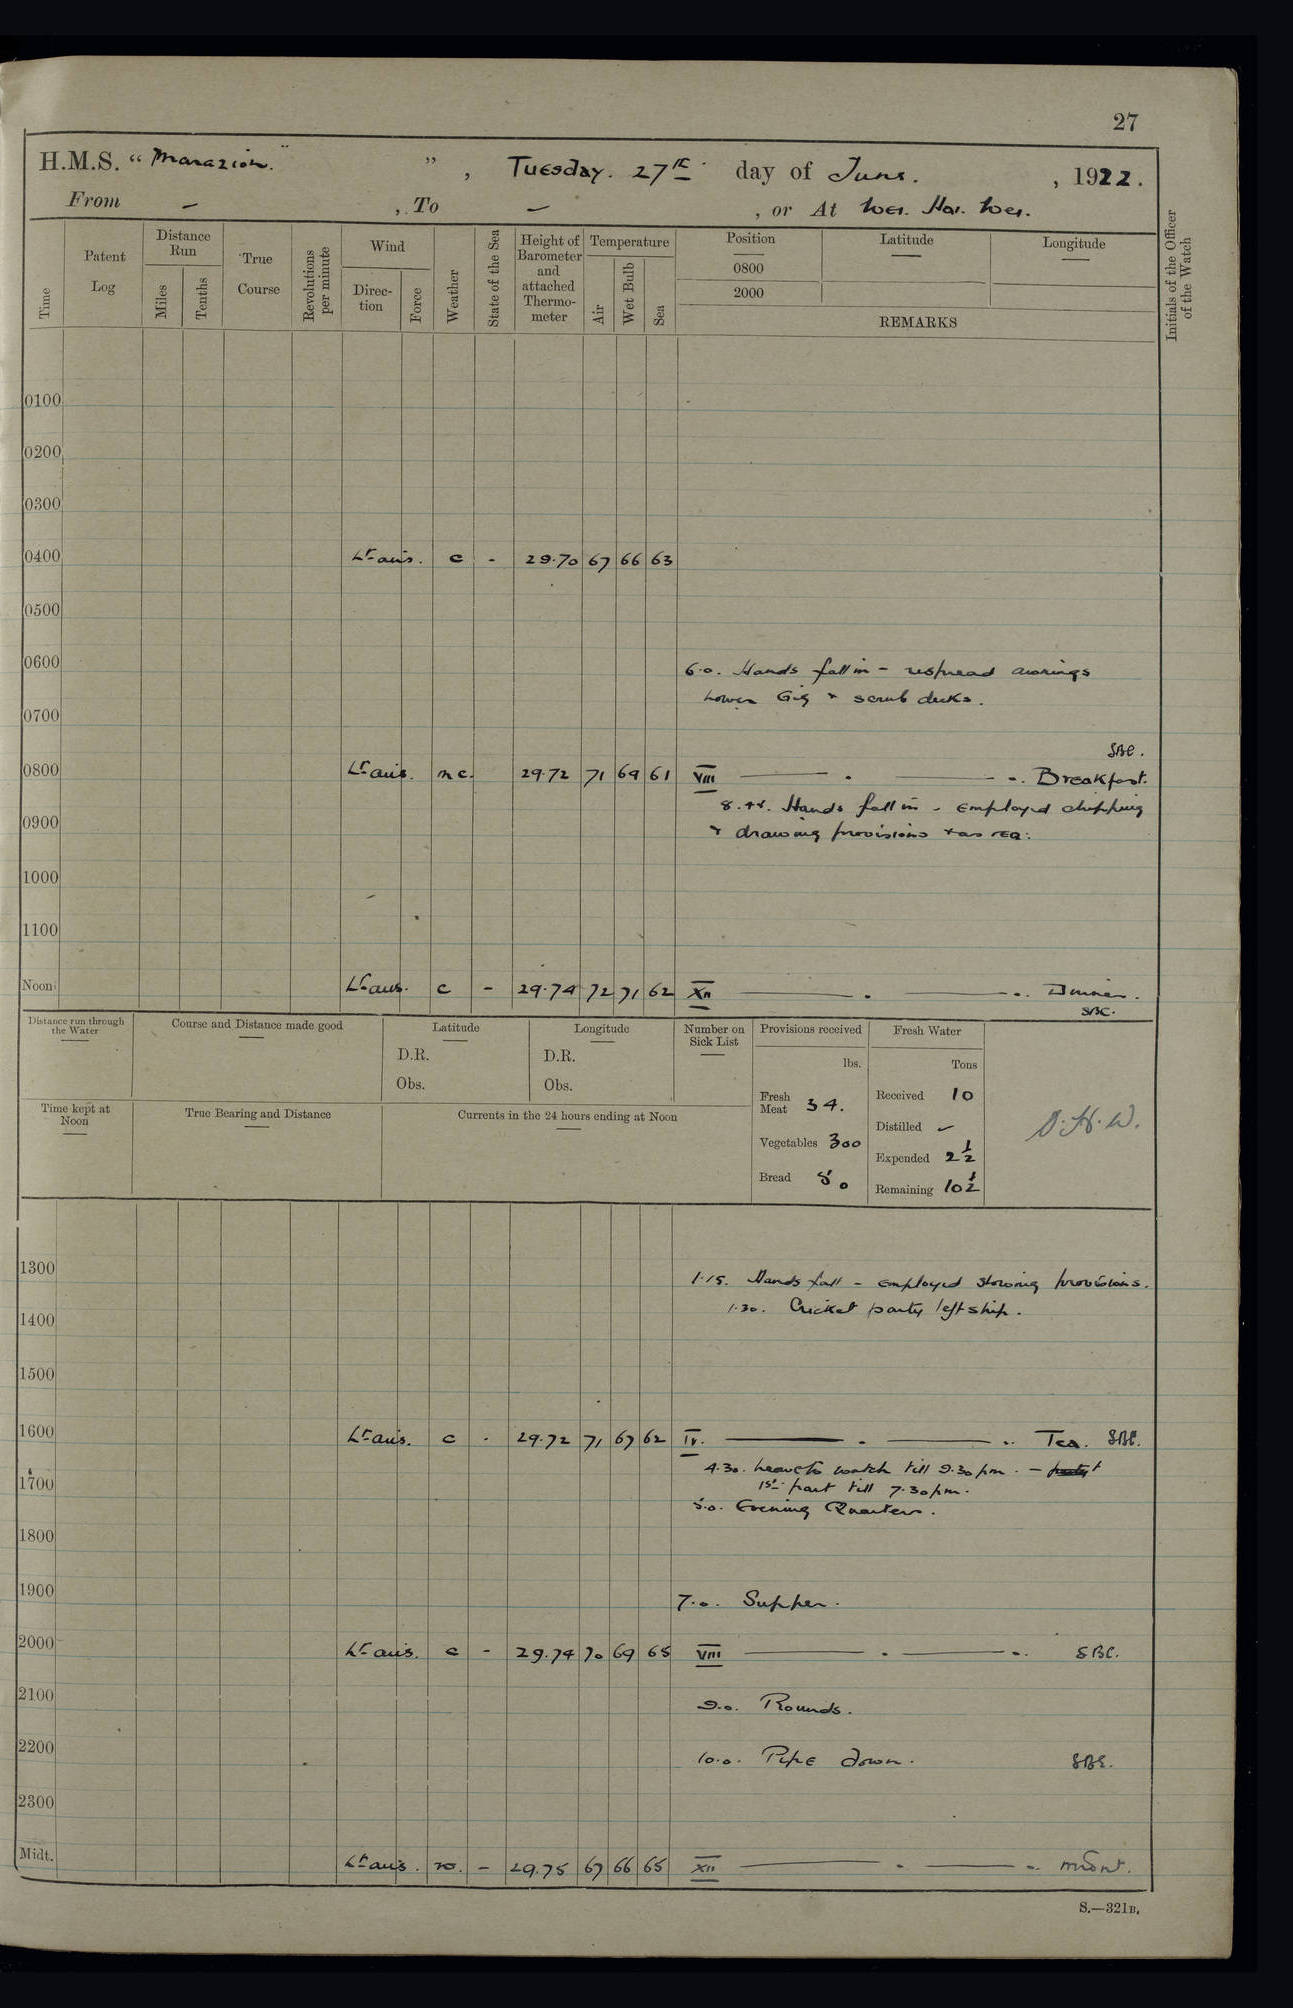 27
H.M.S. "Marazion.", Tuesday. 27th day of June., 1922.
From -, To -, or At Wei. Hai. Wei.
Time
Patent Log
Distance Run
Miles
Tenths
True Course
Revolutions per minute
Wind
Direction
Force
Weather
State of the Sea
Height of Barometer and attached Thermometer
Temperature
Air
Wet Bulb
Sea
Position
0800
2000
Latitude
Longitude
REMARKS
Initials of the Officer of the Watch
0100
0200
0300
0400 Lt airs. c - 29.70 67 66 63
0500
0600 6.0. Hands fall in - respread awnings
Lower Gig & scrub decks.
0700
SBC.
0800 Lt airs. m c. 29.72 71 69 61 VIII Breakfast.
8.45. Hands fall in - Employed chipping
0900
& drawing provisions & as req:
1000
1100
Noon Lt airs. c - 29.74 72 71 62 XII Dinner.
SBC.
Distance run through the Water
Course and Distance made good
Latitude
D.R.
Obs.
Longitude
D.R.
Obs.
Number on Sick List
Provisions received
lbs.
Fresh Meat 34.
Vegetables 300
Bread 50
Fresh Water
Tons
Received 10
Distilled -
Expended 2½
Remaining 10½
D.H.W.
Time kept at Noon
True Bearing and Distance
Currents in the 24 hours ending at Noon
1300 1.15. Hands fall - Employed stowing provisions.
1.30. Cricket party left ship.
1400
1500
1600 Lt airs. c - 29.72 71 67 62 IV. Tea. SBC.
4.30. Leave to watch till 9.30 pm. -
1st part till 7.30 pm.
1700
5.0. Evening Quarters.
1800
1900 7.0. Supper.
2000 Lt airs. c - 29.74 70 69 65 VIII SBC.
2100 9.0. Rounds.
2200 10.0. Pipe down. SBC.
2300
Midt. Lt airs. m. - 29.75 67 66 65 XII
S.—321B.